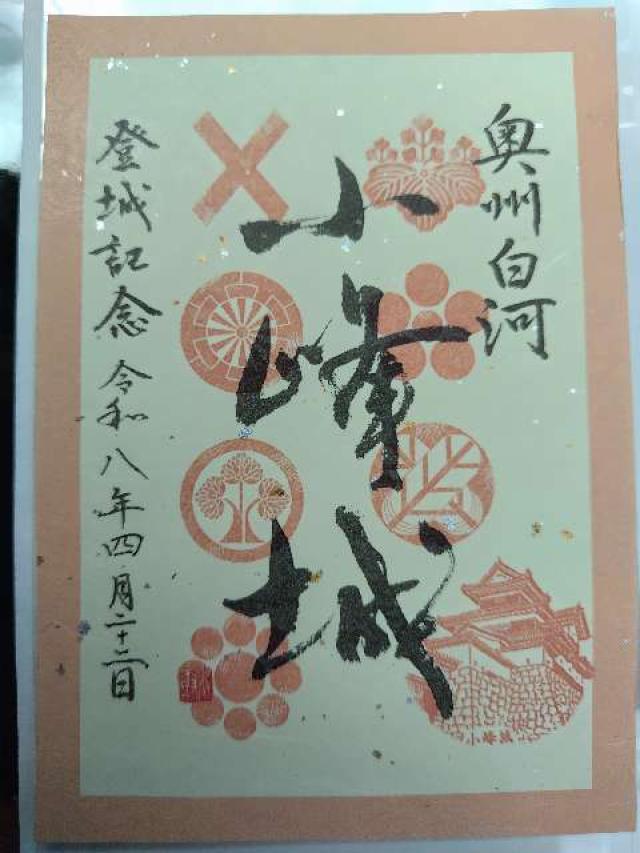 奥州白河
小峰城
登城記念 令和八年四月二十二日
小峰城